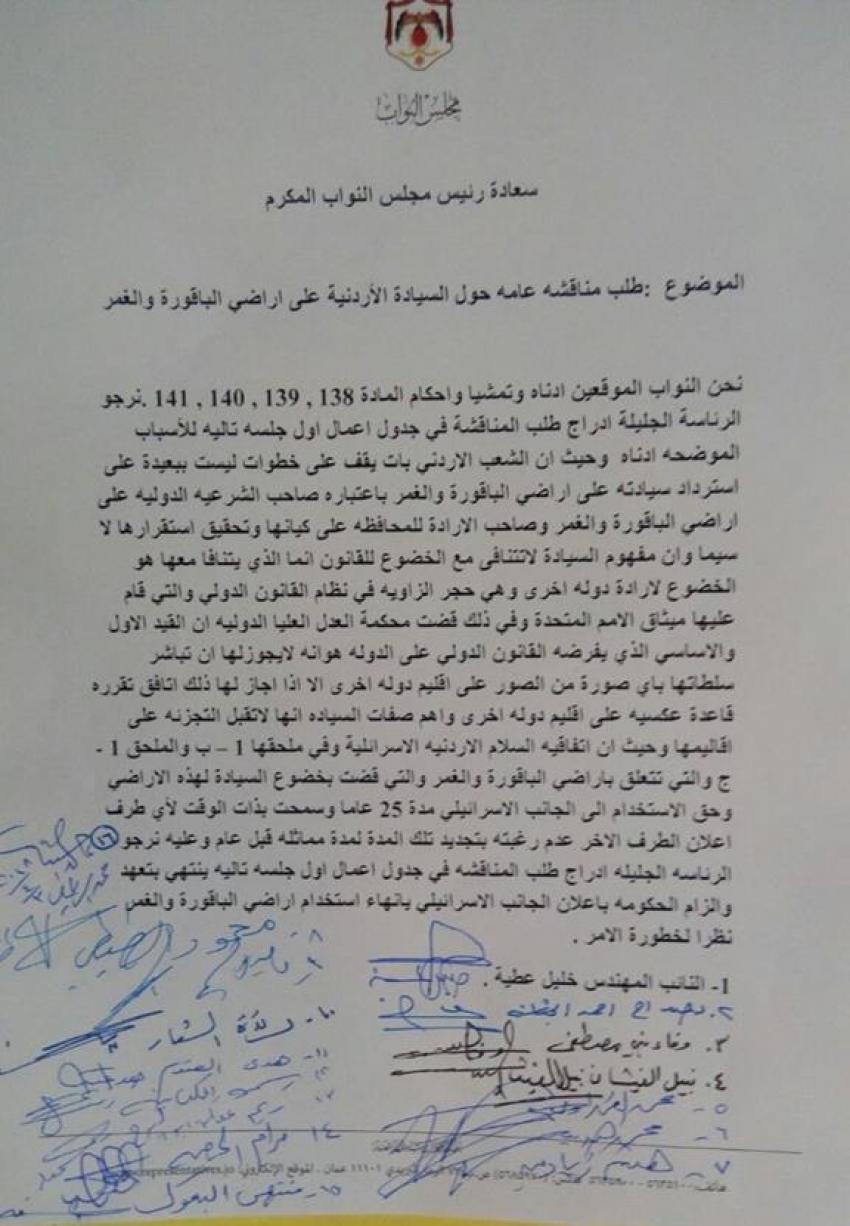 مجلس النواب
سعادة رئيس مجلس النواب المكرم
الموضوع :طلب مناقشه عامه حول السيادة الأردنية على اراضي الباقورة والغمر
نحن النواب الموقعين ادناه وتمشيا واحكام المادة 138 , 139 , 140 , 141 .نرجو
الرئاسة الجليلة ادراج طلب المناقشة في جدول اعمال اول جلسه تاليه للأسباب
الموضحه ادناه وحيث ان الشعب الاردني بات يقف على خطوات ليست ببعيدة على
استرداد سيادته على اراضي الباقورة والغمر باعتباره صاحب الشرعيه الدوليه على
اراضي الباقورة والغمر وصاحب الارادة للمحافظه على كيانها وتحقيق استقرارها لا
سيما وان مفهوم السيادة لاتتنافى مع الخضوع للقانون انما الذي يتنافا معها هو
الخضوع لارادة دوله اخرى وهي حجر الزاويه في نظام القانون الدولي والتي قام
عليها ميثاق الامم المتحدة وفي ذلك قضت محكمة العدل العليا الدوليه ان القيد الاول
والاساسي الذي يفرضه القانون الدولي على الدوله هوانه لايجوزلها ان تباشر
سلطاتها باي صورة من الصور على اقليم دوله اخرى الا اذا اجاز لها ذلك اتافق تقرره
قاعدة عكسيه على اقليم دوله اخرى واهم صفات السياده انها لاتقبل التجزئه على
اقاليمها وحيث ان اتفاقيه السلام الاردنيه الاسرائلية وفي ملحقها 1 – ب والملحق 1 -
ج والتي تتعلق باراضي الباقورة والغمر والتي قضت بخضوع السيادة لهذه الاراضي
وحق الاستخدام الى الجانب الاسرائيلي مدة 25 عاما وسمحت بذات الوقت لأي طرف
اعلان الطرف الاخر عدم رغبته بتجديد تلك المدة لمدة مماثله قبل عام وعليه نرجو
الرئاسه الجليله ادراج طلب المناقشه في جدول اعمال اول جلسه تاليه ينتهي بتعهد
والزام الحكومه باعلان الجانب الاسرائيلي يانهاء استخدام اراضي الباقورة والغمر
نظرا لخطورة الامر .
1- النائب المهندس خليل عطية .
٢.
٣. وفاء بني مصطفى
٤. نبيل الغيشان
٥-
٦-
٧-
٨-
٩-
١٠-
١١- هدى العتوم
١٢-
١٣-
١٤- مرام الحيصه
١٥- منتهى البعول
١٦